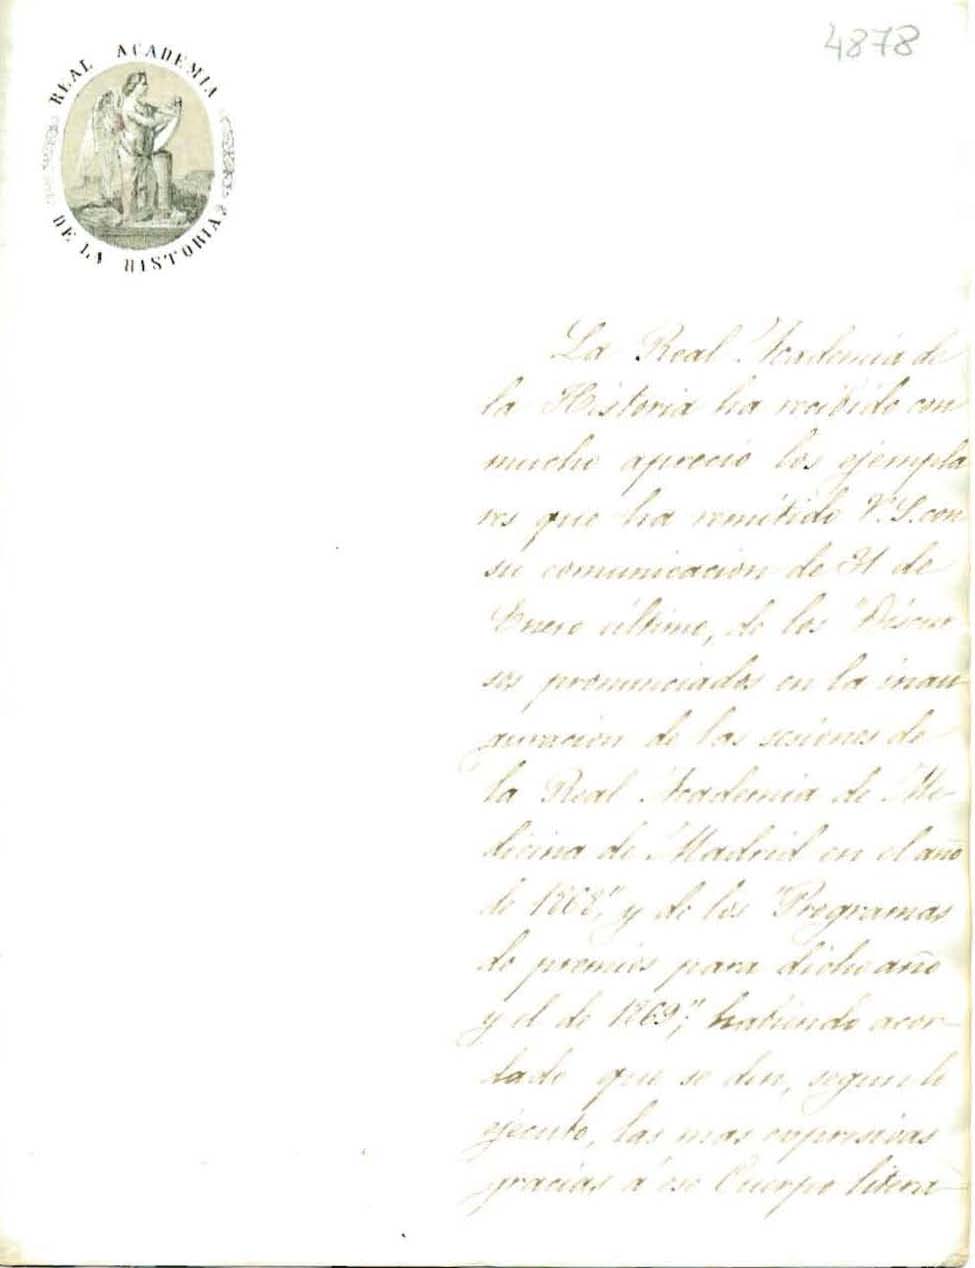 4878
REAL ACADEMIA
DE LA HISTORIA
La Real Academia de
la Historia ha recibido con
mucho aprecio los ejempla
res que ha remitido V.S. con
su comunicacion de 31 de
Enero último, de los "Discur
sos pronunciados en la inau
guracion de las sesiones de
la Real Academia de Me-
dicina de Madrid en el año
de 1868," y de los "Programas
de premios para dicho año
y el de 1869"; habiendo acor-
dado que se den, segun lo
ejecuto, las mas expresivas
gracias á ese Cuerpo litera